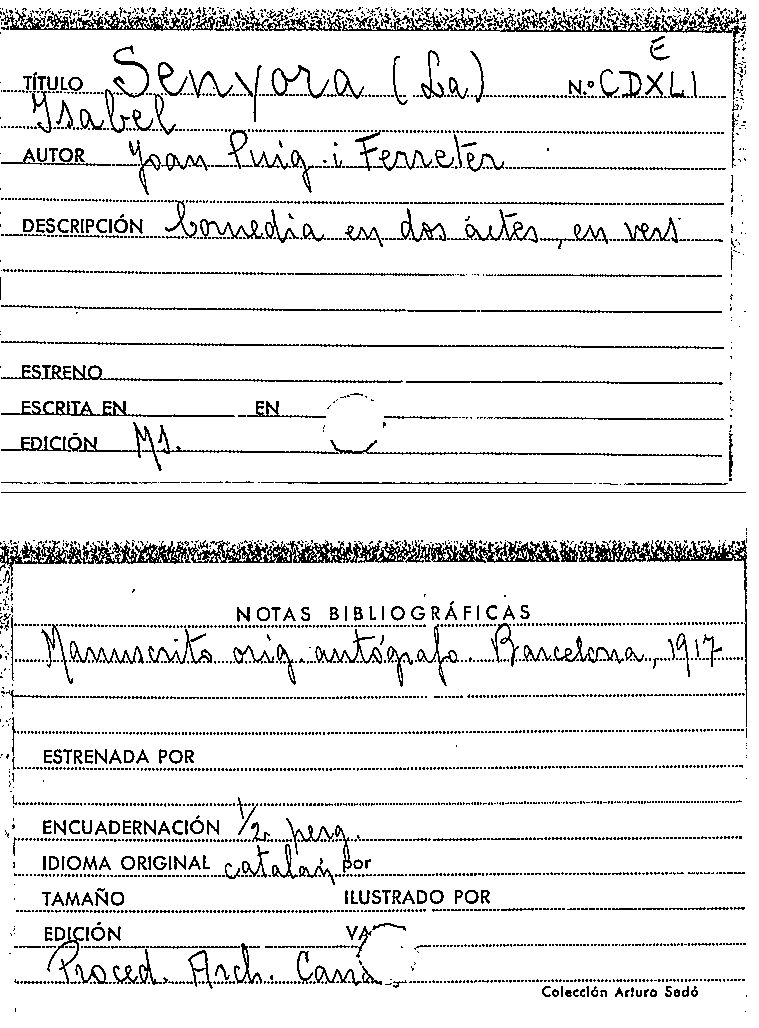 E
TÍTULO Senyora (La) N.º CDXLI
Isabel
AUTOR Joan Puig i Ferreter
DESCRIPCIÓN Comedia en dos actes, en vers
ESTRENO
ESCRITA EN EN
EDICIÓN Ms.
NOTAS BIBLIOGRÁFICAS
Manuscrito orig. autógrafo. Barcelona, 1917
ESTRENADA POR
ENCUADERNACIÓN 1/2 perg.
IDIOMA ORIGINAL catalán por
TAMAÑO ILUSTRADO POR
EDICIÓN VA
Proced. Arch.
Colección Arturo Sedó